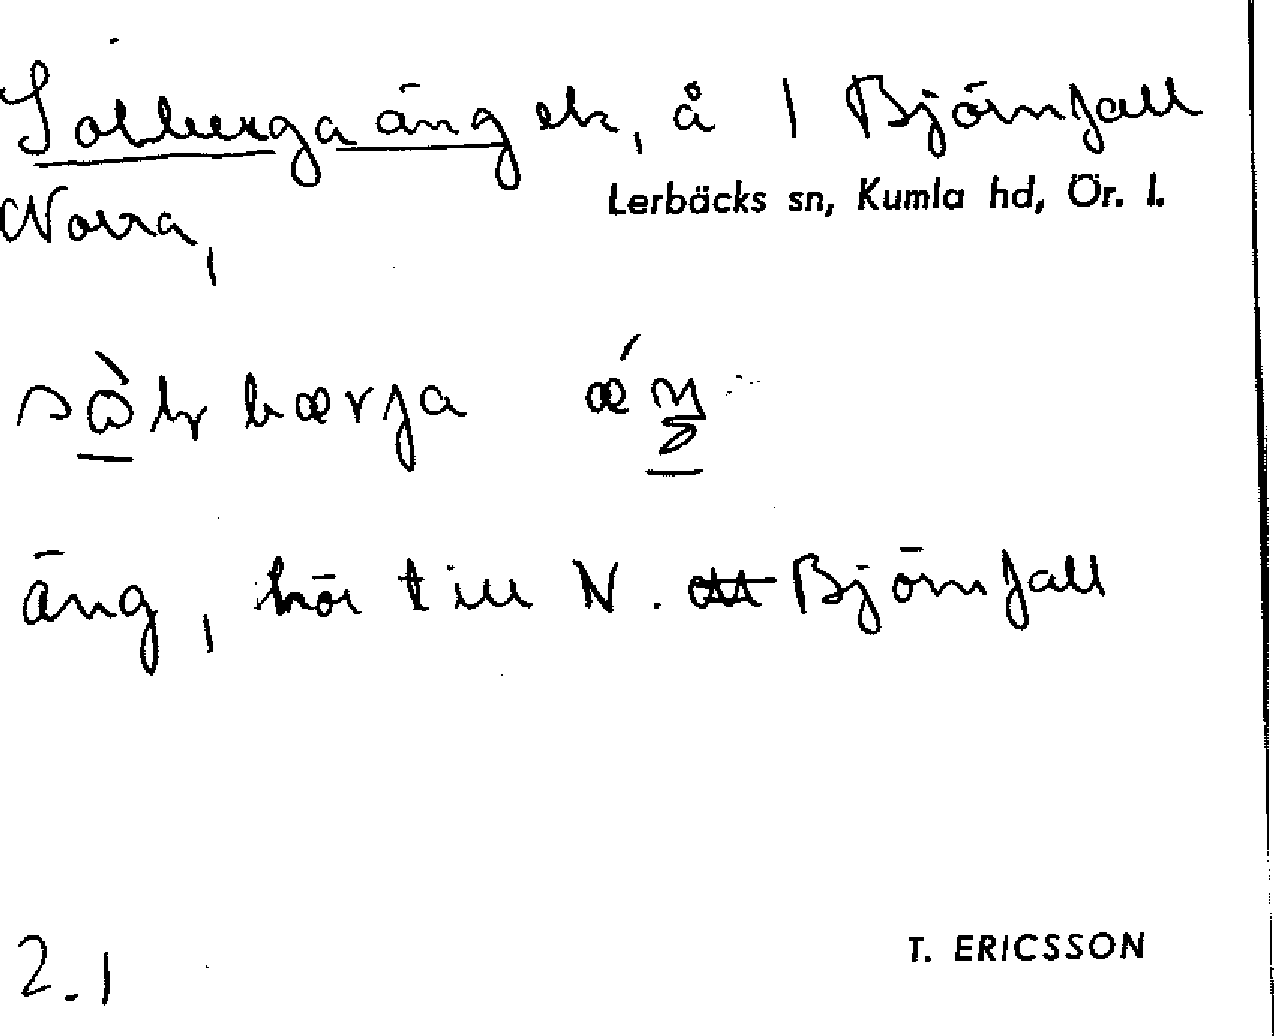 Solbergaäng ek, å 1 Björnfall
Lerbäcks sn, Kumla hd, Ör. l.
Norra,
äng, hör till N. Björnfall
2.1
T. ERICSSON